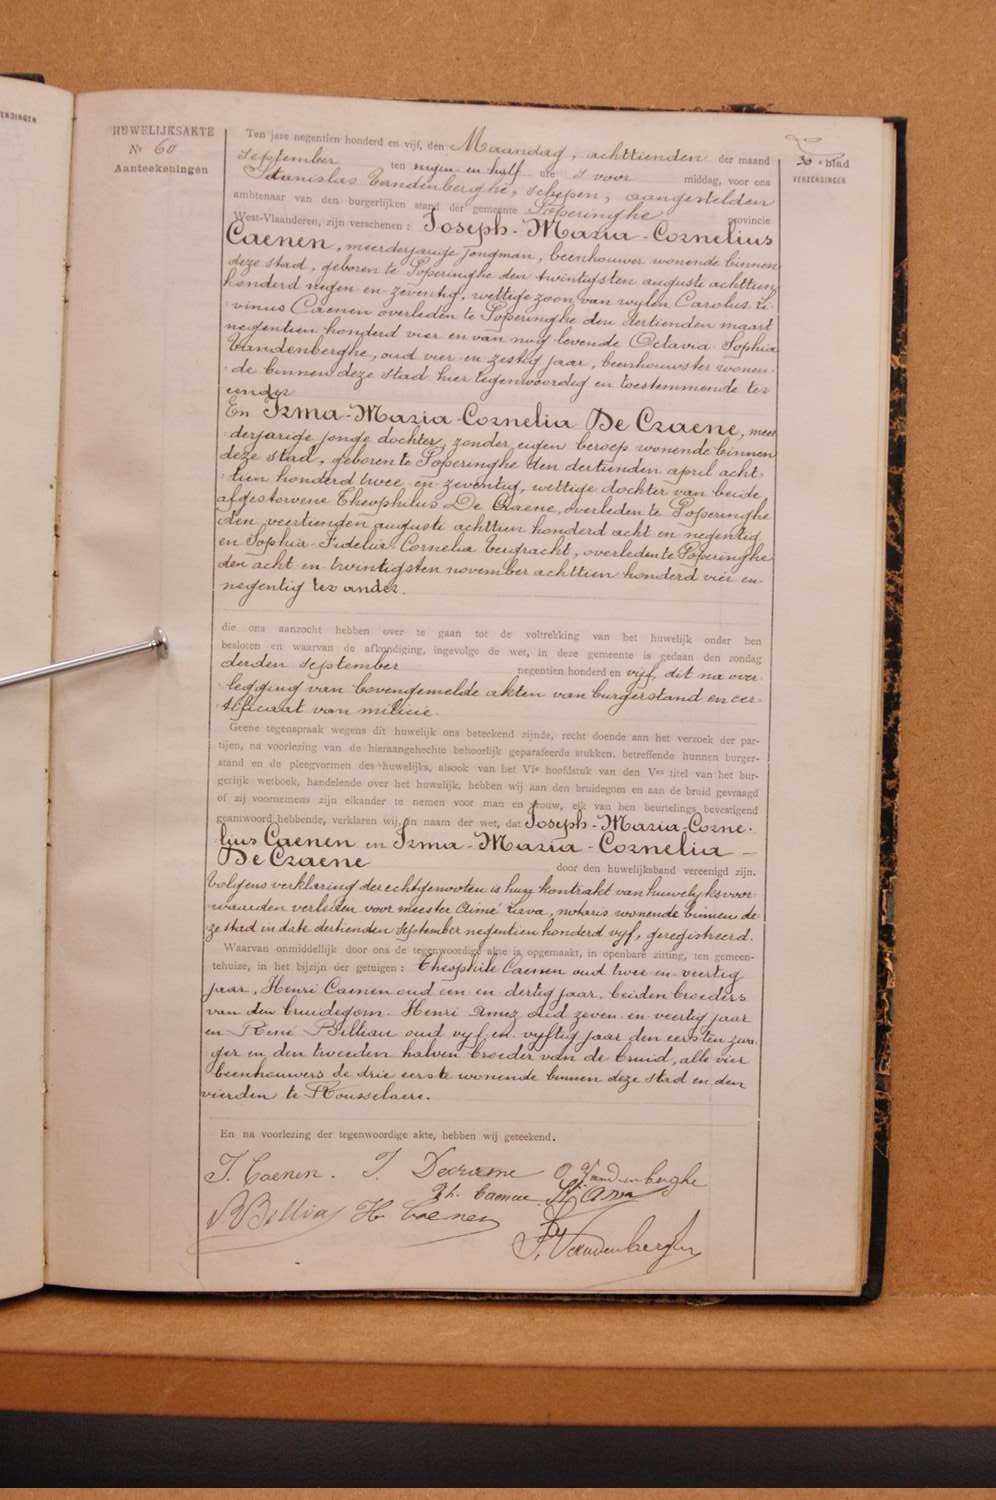 ENDINGEN
HUWELIJKSAKTE
Nr 60
Aanteekeningen
blad
VERZENDINGEN
Ten jare negentien honderd en vijf, den Maandag, achttienden der maand
september ten negen en half ure 's voor middag, voor ons
Stanislas Vandenberghe, schepen, aangestelden
ambtenaar van den burgerlijken stand der gemeente Poperinghe, provincie
West-Vlaanderen, zijn verschenen : Joseph-Maria-Cornelius
Caenen, meerderjarige jongman, beenhouwer wonende binnen
deze stad, geboren te Poperinghe den twintigsten augusti achttien
honderd negen en zeventig, wettige zoon van wylen Carolus Li
vinus Caenen overleden te Poperinghe den dertienden maart
negentien honderd vier en van nog levende Octavia Sophia
Vandenberghe, oud vier en zestig jaar, beenhouwster wonen-
de binnen deze stad hier tegenwoordig en toestemmende ter
eender
En Irma-Maria-Cornelia De Craene, meer
derjarige jonge dochter, zonder eigen beroep wonende binnen
deze stad, geboren te Poperinghe den dertienden april acht-
tien honderd twee en zeventig, wettige dochter van beide
afgestorvene Theophilus De Craene, overleden te Poperinghe
den veertienden augusti achttien honderd acht en negentig
en Sophia Fidelia Cornelia Vergracht, overleden te Poperinghe
den acht en twintigsten november achttien honderd vier en
negentig ter ander.
die ons aanzocht hebben over te gaan tot de voltrekking van het huwelijk onder hen
besloten en waarvan de afkondiging, ingevolge de wet, in deze gemeente is gedaan den zondag
derden september negentien honderd en vijf, dit na over
legging van bovengemelde akten van burgerstand en cer-
tificaat van milicie.
Geene tegenspraak wegens dit huwelijk ons beteekend zijnde, recht doende aan het verzoek der par-
tijen, na voorlezing van de hieraangehechte behoorlijk geparafeerde stukken, betreffende hunnen burger-
stand en de pleegvormen des huwelijks, alsook van het VIe hoofdstuk van den Ven titel van het bur-
gerlijk wetboek, handelende over het huwelijk, hebben wij aan den bruidegom en aan de bruid gevraagd
of zij voornemens zijn elkander te nemen voor man en vrouw, elk van hen beurtelings bevestigend
geantwoord hebbende, verklaren wij, in naam der wet, dat Joseph-Maria-Corne-
lius Caenen en Irma-Maria-Cornelia
De Craene door den huwelijksband vereenigd zijn.
Volgens verklaring der echtgenooten is hun kontrakt van huwelyksvoor
waarden verleden voor meester Aimé Lava, notaris wonende binnen de
ze stad in date dertienden september negentien honderd vyf, geregistreerd.
Waarvan onmiddellijk door ons de tegenwoordige akte is opgemaakt, in openbare zitting, ten gemeen-
tehuize, in het bijzijn der getuigen : Theophile Caenen oud twee en veertig
jaar, Henri Caenen oud een en dertig jaar, beiden broeders
van den bruidegom. Henri Amez oud zeven en veertig jaar
en René Billiau oud vyf en vyftig jaar den eersten zwa-
ger en den tweeden halven broeder van de bruid, alle vier
beenhouwers de drie eerste wonende binnen deze stad en den
vierden te Rousselaere.
En na voorlezing der tegenwoordige akte, hebben wij geteekend.
J. Caenen. I. Decraene O Vandenberghe
Th. Caenen
R Billiau H. Caenen
S. Vandenberghe